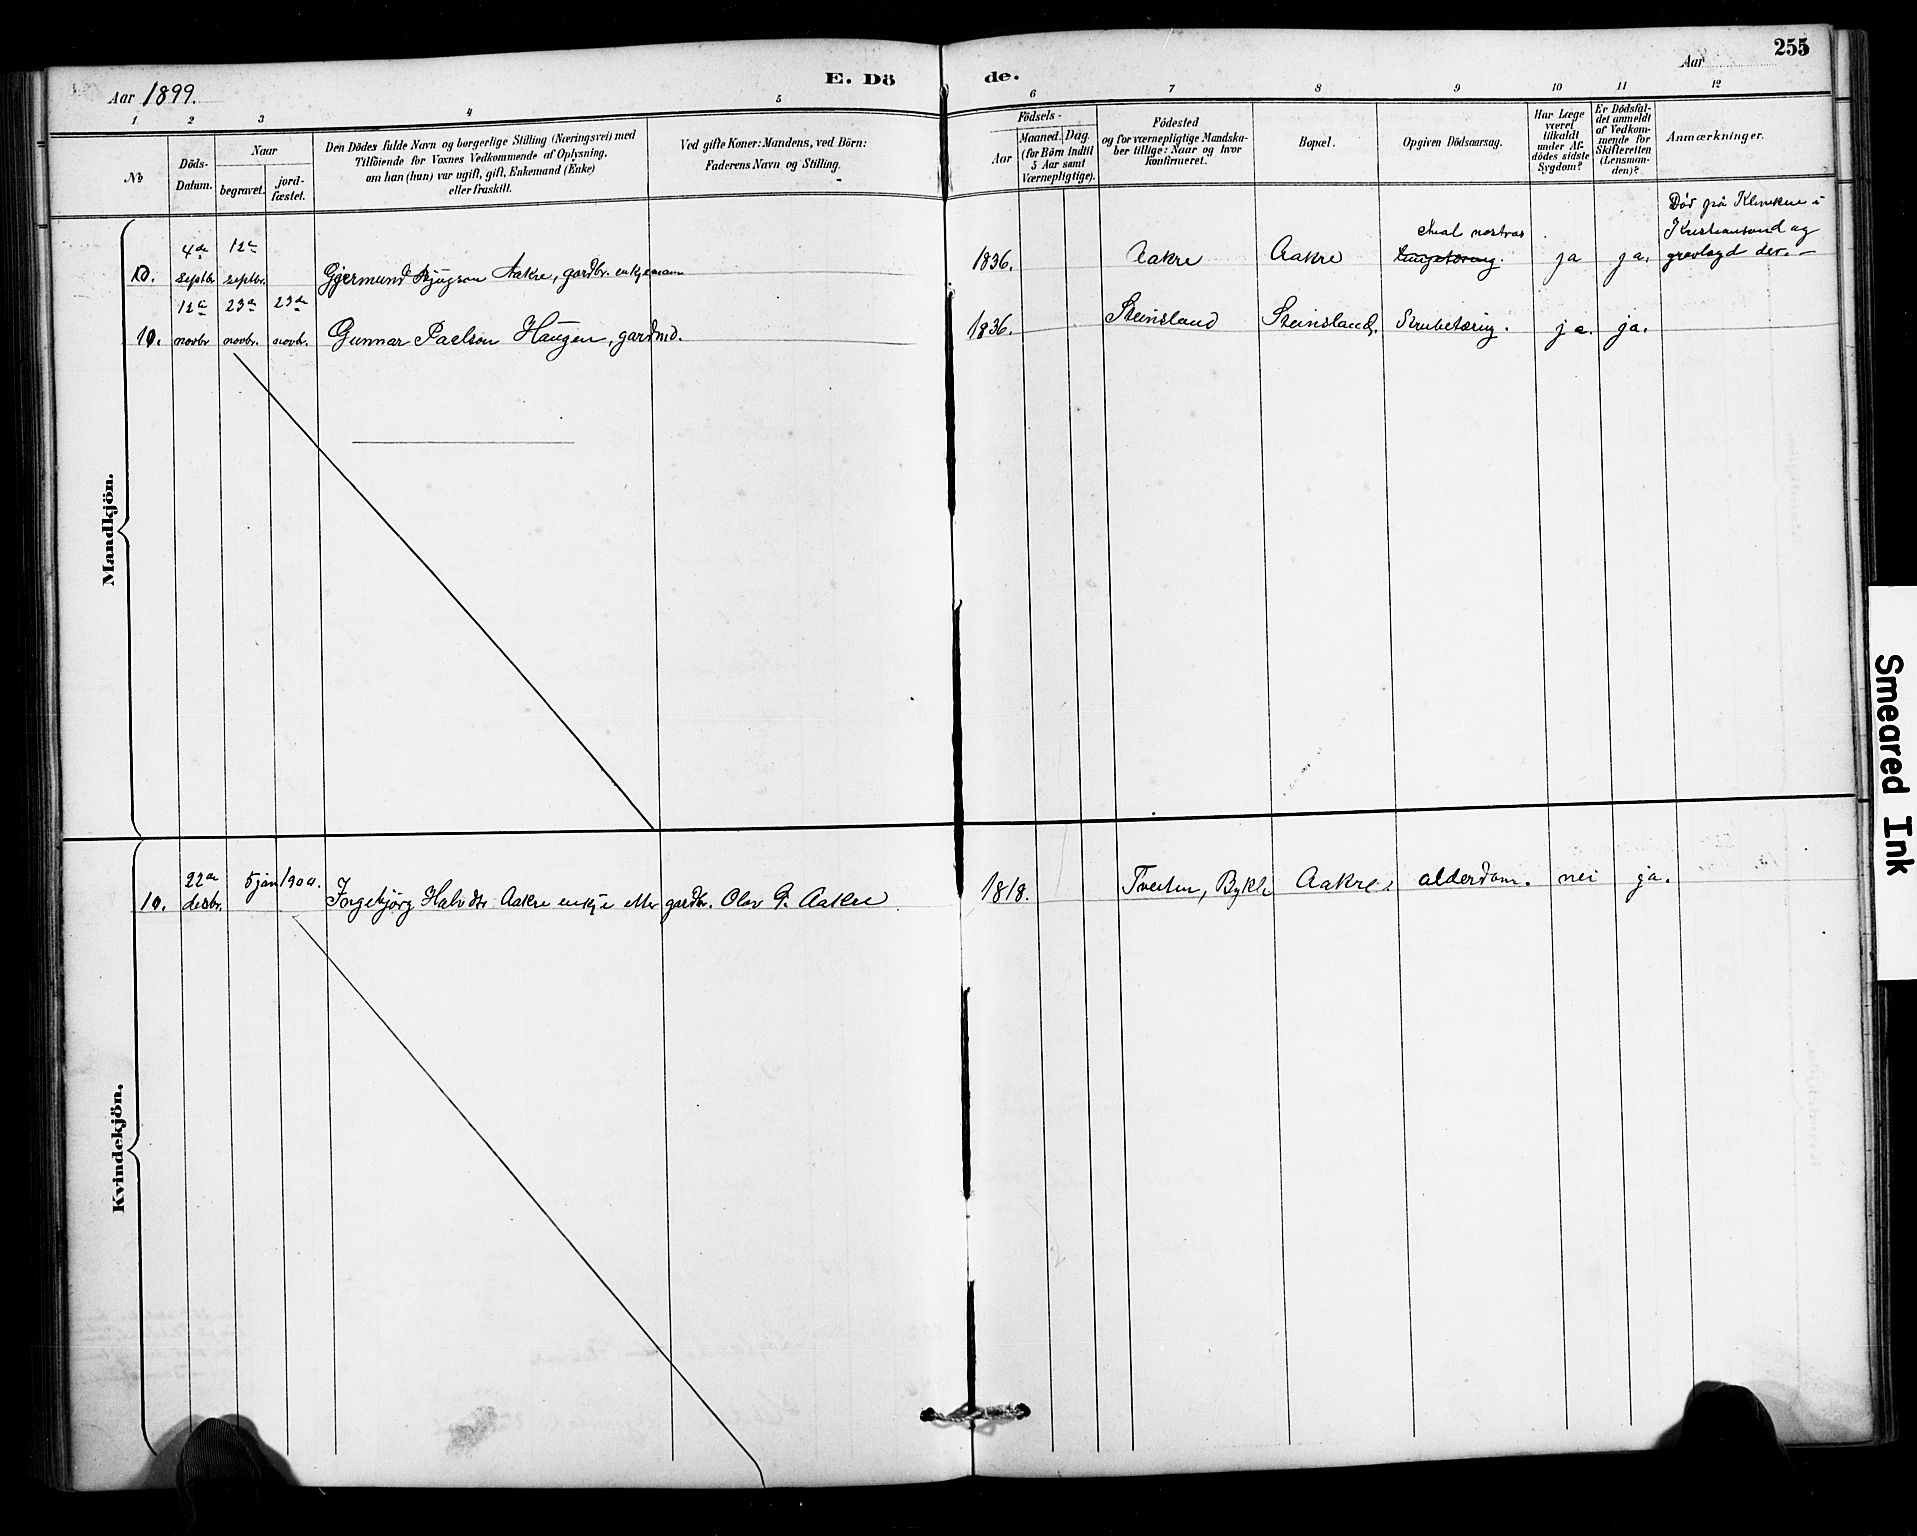 255
Aar 1899.
E. Dö de.
Aar
1 2 3 4 5 6 7 8 9 10 11 12
No
Döds-
Datum.
Naar
begravet.
jord-
fæstet.
Den Dödes fulde Navn og borgerlige Stilling (Næringsvei) med
Tilföiende for Voxnes Vedkommende af Oplysning,
om han (hun) var ugift, gift, Enkemand (Enke)
eller fraskilt.
Ved gifte Koner: Mandens, ved Börn:
Faderens Navn og Stilling.
Födsels-
Aar
Maaned. Dag.
(for Börn indtil
5 Aar samt
Værnepligtige).
Födested
og for værnepligtige Mandska-
ber tillige: Naar og hvor
konfirmeret.
Bopæl.
Opgiven Dödsaarsag.
Har Læge
været
tilkaldt
under Af-
dödes sidste
Sygdom?
Er Dödsfal-
det anmeldt
af Vedkom-
mende for
Skifteretten
(Lensman-
den)?
Anmærkninger.
Mandkjön.
10. 4de septbr 12te septbr. Gjermund Aakre, gardbr. enkjemann 1836. Aakre Aakre nostras Lungetæring. ja ja.
Död på Kliniken i
Kristiansand og
gravlagd der. –
10. 12te novbr 23de novbr. 23de novbr. Gunnar Paalson Haugen, gardmd. 1836. Steinsland Steinsland. ja. ja.
Kvindekjön.
10. 22de desbr. 5 jan 1900. Ingebjørg Halvdtr Aakre enkje etter gardbr. Olav G. Aakre 1818. Tveiten, Bykle Aakre alderdom. nei ja.
Smeared Ink